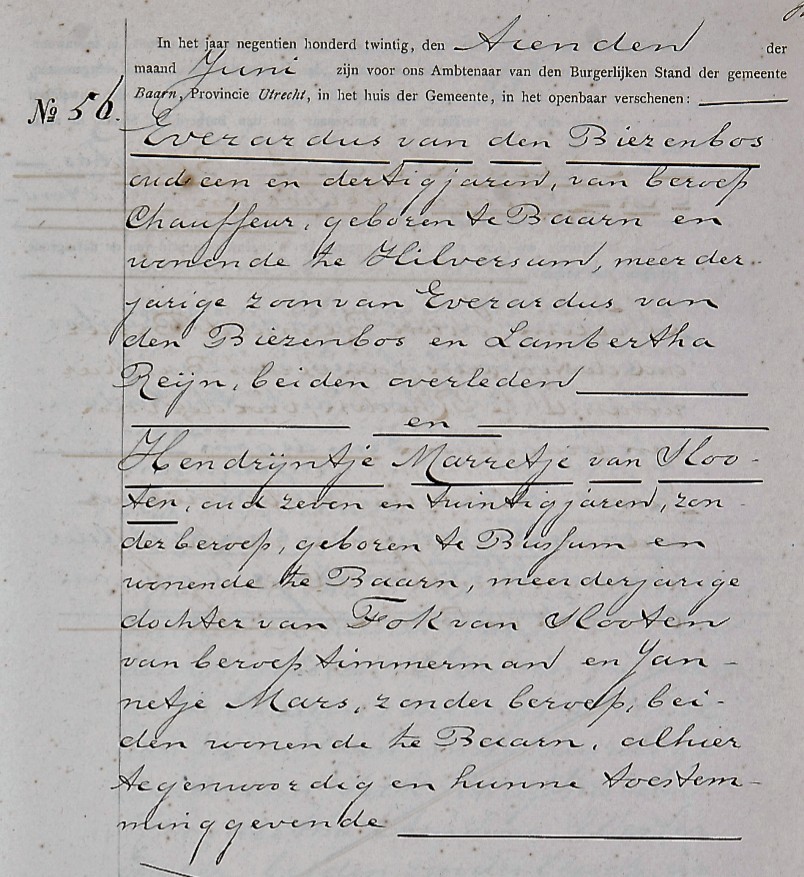 In het jaar negentien honderd twintig, den Tienden der
maand Juni zijn voor ons Ambtenaar van den Burgerlijken Stand der gemeente
Baarn, Provincie Utrecht, in het huis der Gemeente, in het openbaar verschenen:
No 56.
Everardus van den Biezenbos
oud een en dertig jaren, van beroep
Chauffeur, geboren te Baarn en
wonende te Hilversum, meerder-
jarige zoon van Everardus van
den Biezenbos en Lambertha
Reijn, beiden overleden
en
Hendrijntje Marretje van Sloo-
ten, oud zeven en twintig jaren, zon-
der beroep, geboren te Bussum en
wonende te Baarn, meerderjarige
dochter van Fok van Slooten
van beroep timmerman en Jan-
netje Mars, zonder beroep, bei-
den wonende te Baarn, alhier
tegenwoordig en hunne toestem-
ming gevende